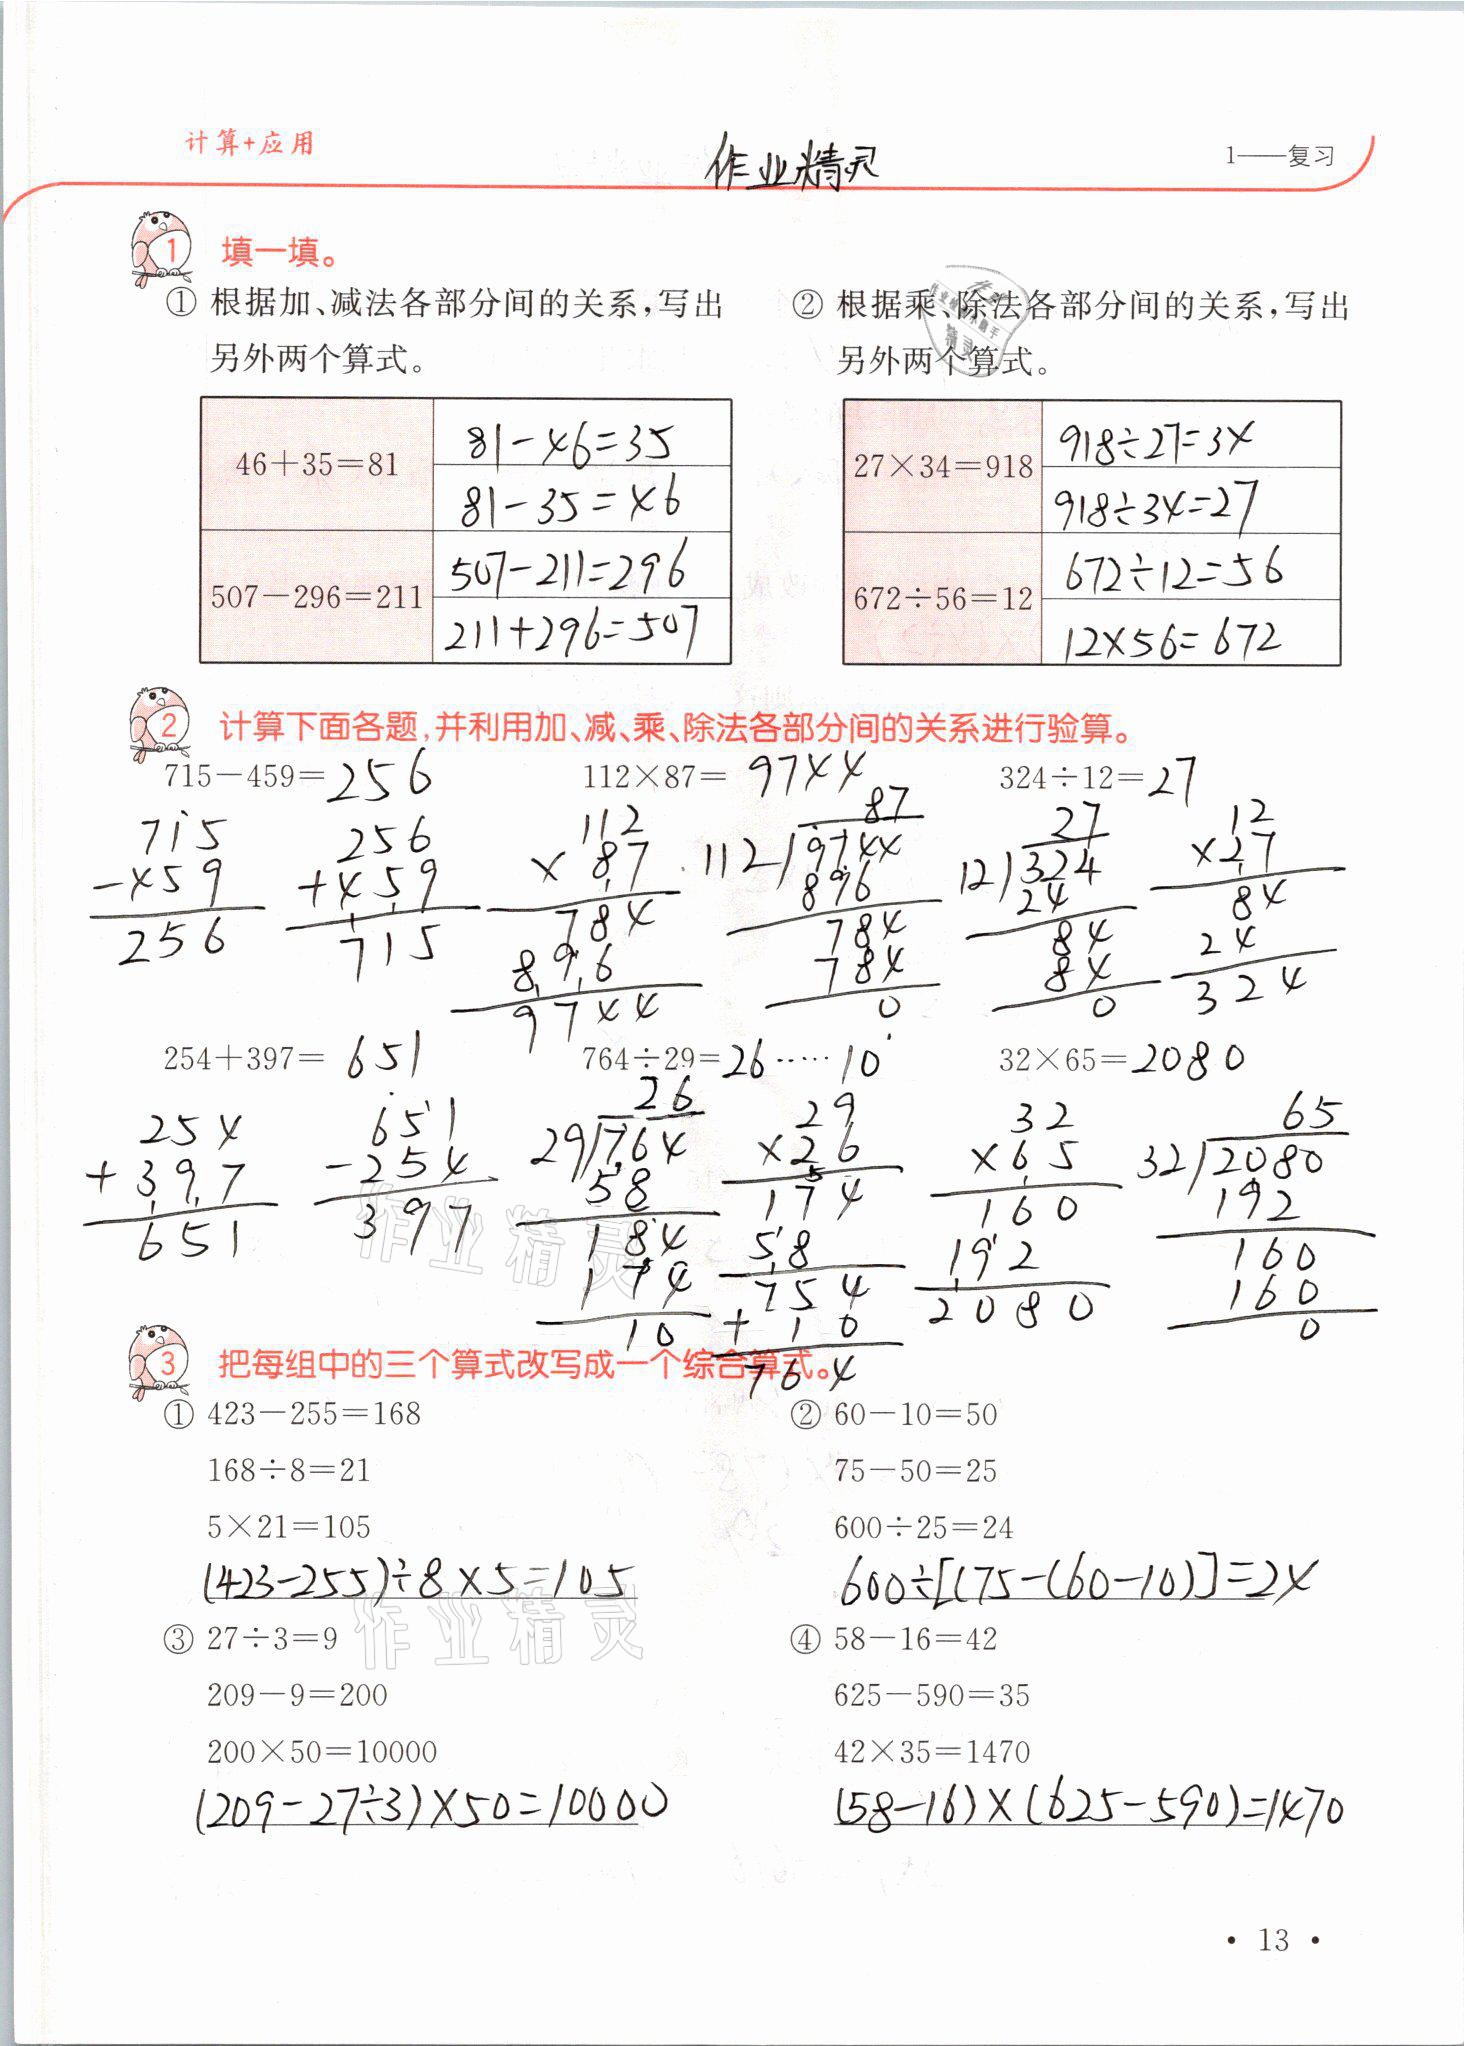 计算+应用
作业精灵
1——复习
1 填一填。
① 根据加、减法各部分间的关系,写出
另外两个算式。
46+35=81
81-46=35
81-35=46
507-296=211
507-211=296
211+296=507
② 根据乘、除法各部分间的关系,写出
另外两个算式。
27×34=918
918÷27=34
918÷34=27
672÷56=12
672÷12=56
12×56=672
2 计算下面各题,并利用加、减、乘、除法各部分间的关系进行验算。
715-459=256
715
-459
256
256
+459
715
112×87=9744
112
×87
784
896
9744
87
112)9744
896
784
784
0
324÷12=27
27
12)324
24
84
84
0
12
×27
84
24
324
254+397=651
254
+397
651
651
-254
397
764÷29=26……10
26
29)764
58
184
174
10
29
×26
174
58
754
+10
764
32×65=2080
32
×65
160
192
2080
65
32)2080
192
160
160
0
3 把每组中的三个算式改写成一个综合算式。
① 423-255=168
168÷8=21
5×21=105
(423-255)÷8×5=105
② 60-10=50
75-50=25
600÷25=24
600÷[(75-(60-10)]=24
③ 27÷3=9
209-9=200
200×50=10000
(209-27÷3)×50=10000
④ 58-16=42
625-590=35
42×35=1470
(58-16)×(625-590)=1470
作业精灵
作业精灵
• 13 •